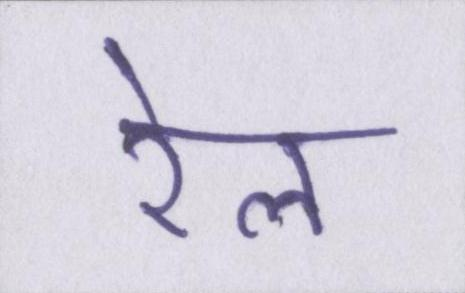 रेल